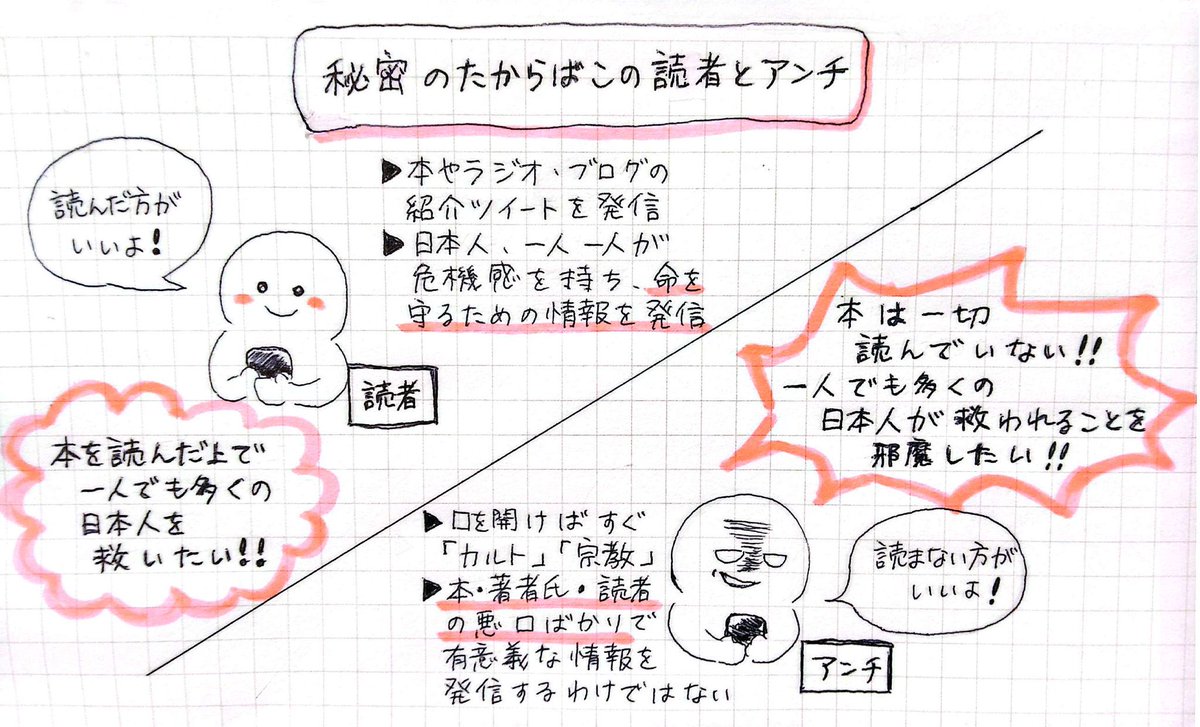 秘密のたからばこの読者とアンチ
読んだ方が
いいよ!
▶本やラジオ・ブログの
紹介ツイートを発信
▶日本人、一人一人が
危機感を持ち、命を
守るための情報を発信
読者
本を読んだ上で
一人でも多くの
日本人を
救いたい!!
本は一切
読んでいない!!
一人でも多くの
日本人が救われることを
邪魔したい!!
▶口を開けばすぐ
「カルト」「宗教」
▶本・著者氏・読者
の悪口ばかりで
有意義な情報を
発信するわけではない
読まない方が
いいよ!
アンチ